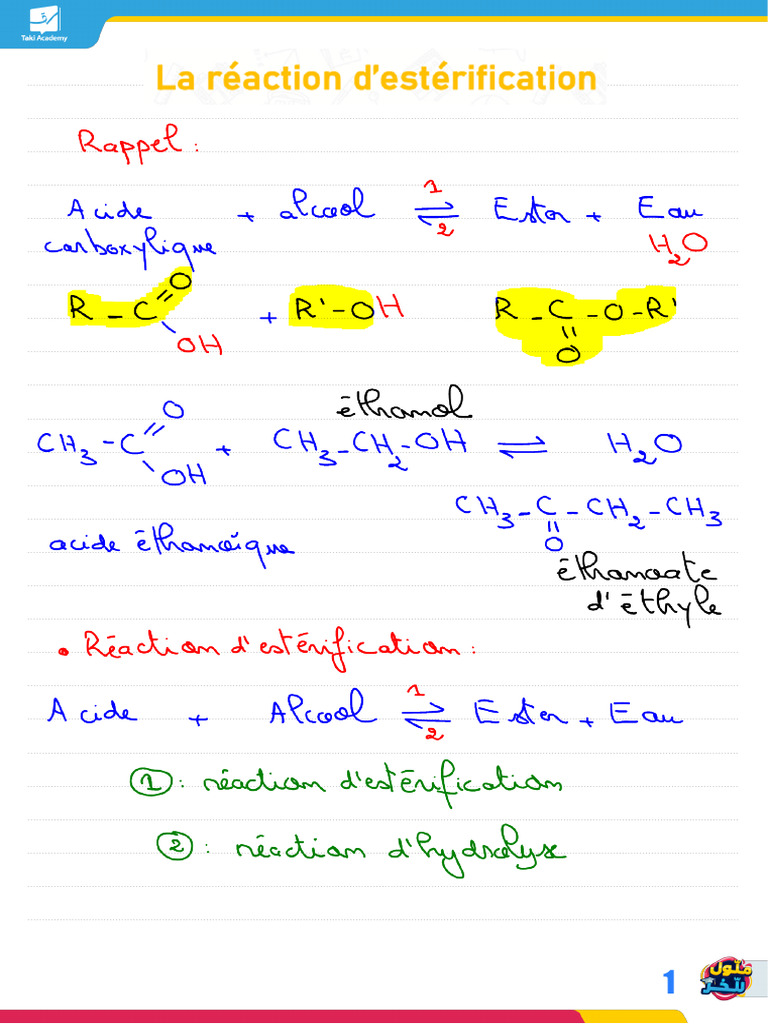 Taki Academy
La réaction d'estérification
Rappel :
Acide carboxylique + alcool ⇌ Ester + Eau
1
2
H2O
R - C = O
OH
+ R' - OH
R - C - O - R'
=
O
éthanol
CH3 - C = O
OH
+ CH3 - CH2 - OH ⇌ H2O
CH3 - C - CH2 - CH3
=
O
acide éthanoïque
éthanoate
d'éthyle
• Réaction d'estérification :
Acide + Alcool ⇌ Ester + Eau
1
2
① : réaction d'estérification
② : réaction d'hydrolyse
1